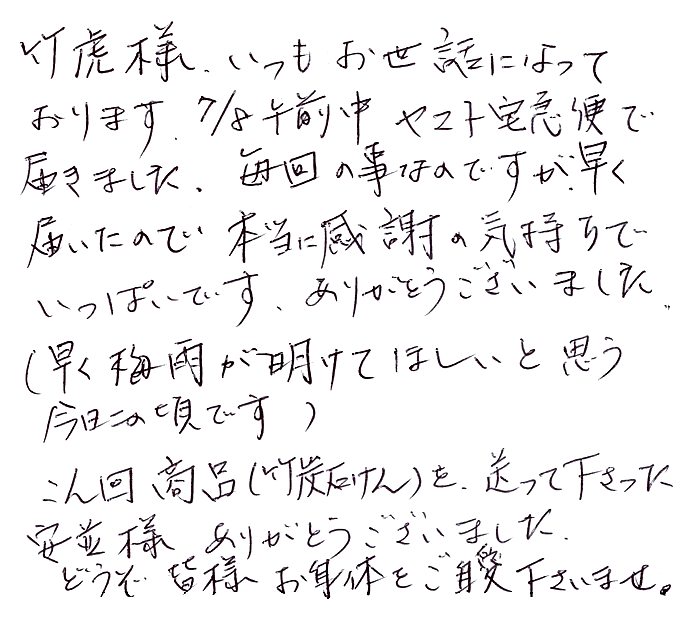 竹虎様、いつもお世話になって
おります。7/8午前中 ヤマト宅急便で
届きました。毎回の事なのですが、早く
届いたので 本当に感謝の気持ちで
いっぱいです。ありがとうございました。
(早く梅雨が明けてほしいと思う
今日この頃です)
こん回 商品(竹炭石けん)を、送って下さった
安並様 ありがとうございました。
どうぞ 皆様 お身体をご自愛下さいませ。